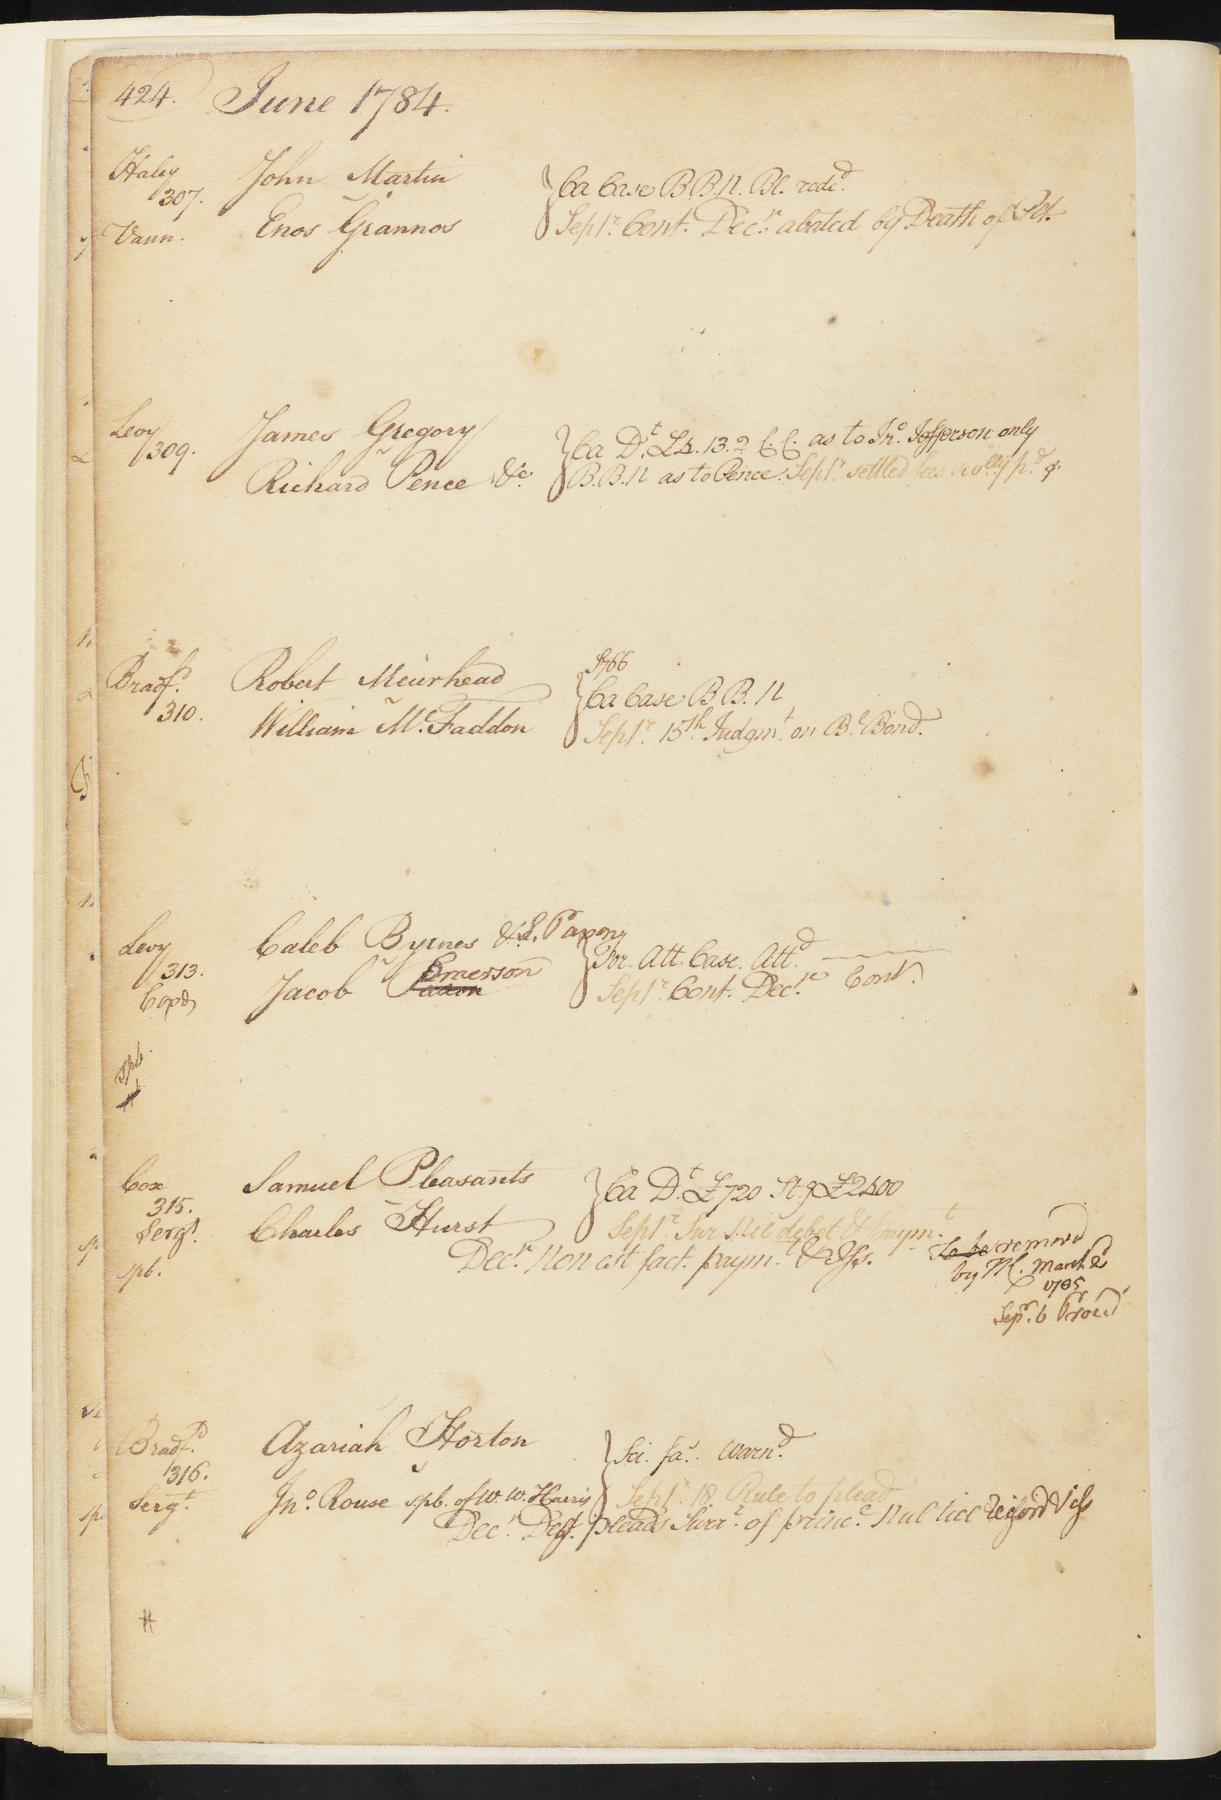 424. June 1784.
Haley John Martin } Ca Case B.B.N. Bl. redd.
307.
Vann. Enos Grannos Sept.r Cont. Dec.r abated by Death of Plt.
Levy James Gregory } Ca D.t £4.13.2 C.C. as to Jn.o Jefferson only
309.
Richard Pence &c. B.B.N as to Pence. Sept.r settled fees p.d
Bradf.d Robert Meurhead
310. } Ca Case B.B.N
William Mc.Faddon Sept.r 15th Judgm.t on B.l Bond.
Levy Caleb Byrnes & } For. Att. Case. Att.d
313. Emerson
Jacob Sept.r Cont. Dec.r Cont.
Copd
spb.
Cox Samuel Pleasants } Ca D.t £720 St.g £2400
315.
Serg.t Charles Hurst Sept.r Sur Nil debet & Paym.t
spb. Dec.r Non est fact. paym.t & Iss. To be removd
by M. March 2
1785
Sep.r 6 Proced
Bradf.d Azariah Horton } Sci. fa.s warn.d
316.
Serg.t Jn.o Rouse spb. of W. W. Harris Sept.r 18. Rule to plead
Dec.r Deft. pleads Surr.r of princ.l Nul tiel record & Iss
#